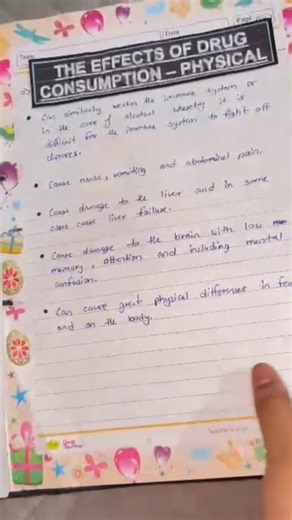 Topic
Date
Page
THE EFFECTS OF DRUG
CONSUMPTION – PHYSICAL
• Can similarly weaken the immune system or
in the case of alcohol whereby it is
difficult for the immune system to fight off
diseases.
• Cause nause, vomiting and abdominal pain.
• Cause damage to the liver and in some
cases cause liver failure.
• Cause damage to the brain with low
memory, attention and including mental
confusion.
• Can cause great physical differences in
and on the body.